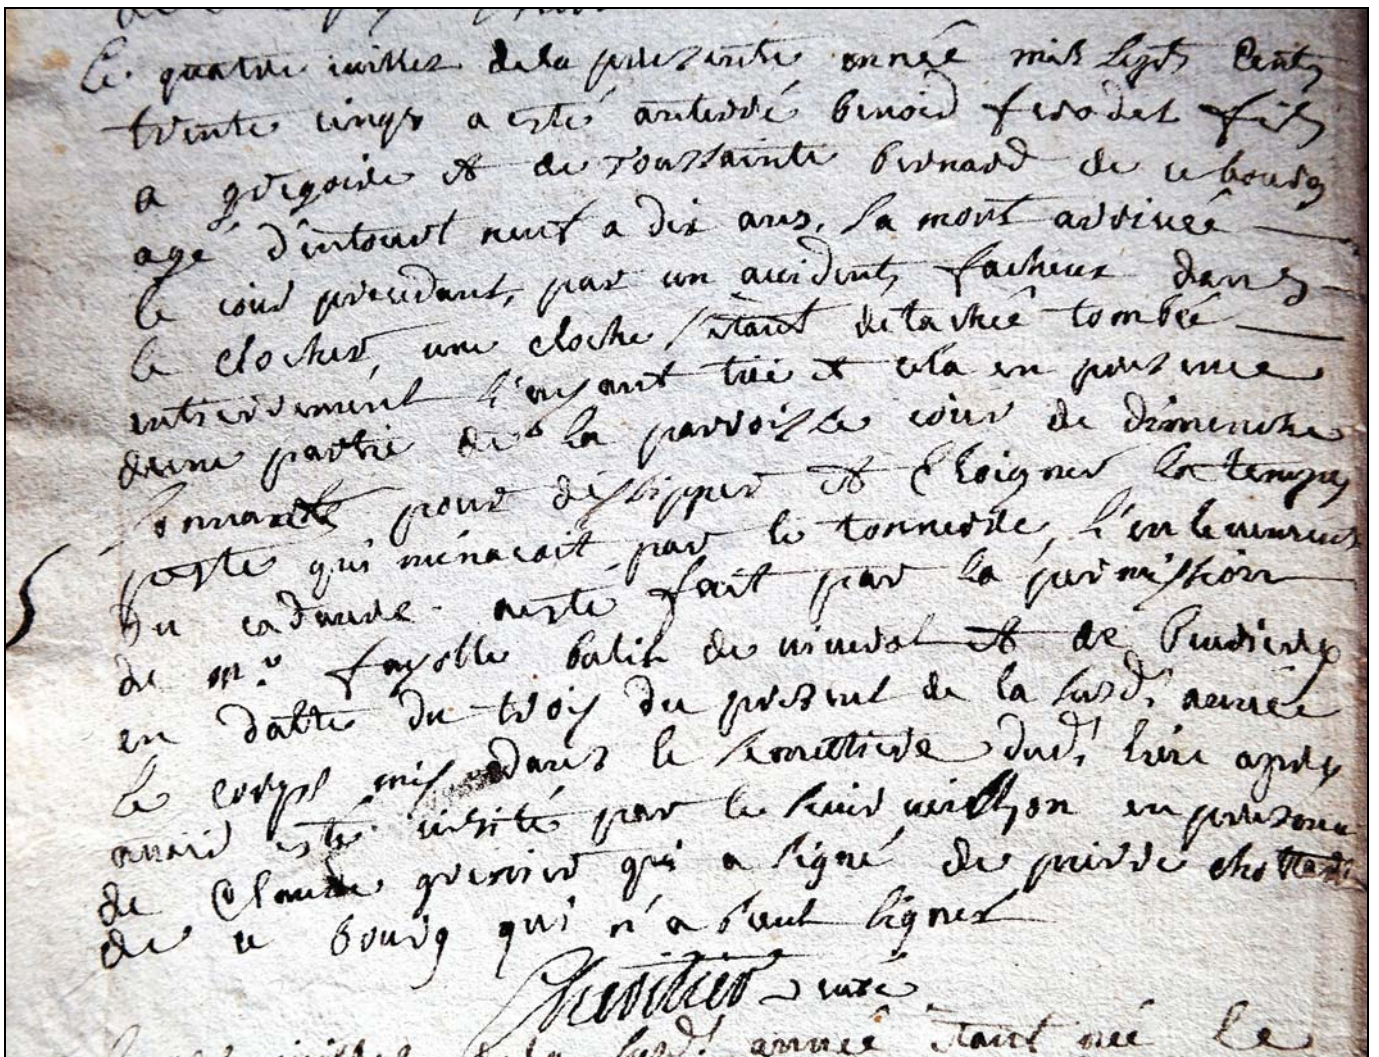 Le quatre juillet de la presente année mil sept cent
trente cinq a esté anterré benoid ferodet fils
a gregoire et de toussainte bernard de ce bourg
agé d'entour neuf a dix ans, sa mort arrivée
le jour precedant, par un accident facheux dans
le clocher, une cloche s'etant détachée tombée
entierement l'enfant tué et cela en presence
d'une partie de la parroisse jour de dimenche
sonnants pour dissipper et eloigner la tempes
peste qui menacait par le tonnerre, l'enlevement
du cadavre a esté fait par la permission
de mr fayolle balif de et de
en datte du trois du present de la susd. année
le corps mis dans le semettiere dud. lieu apres
avoir esté visité par le sieur en presence
de Claude grenier qui a signé de pierre
de ce bourg qui n'a sceut signer
curé
juillet de la susd. année etant née le